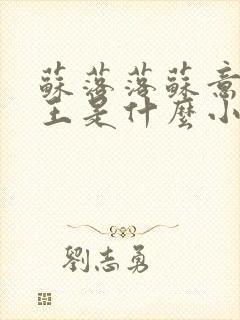 蘇落落蘇意
主是什麼小
劉志勇